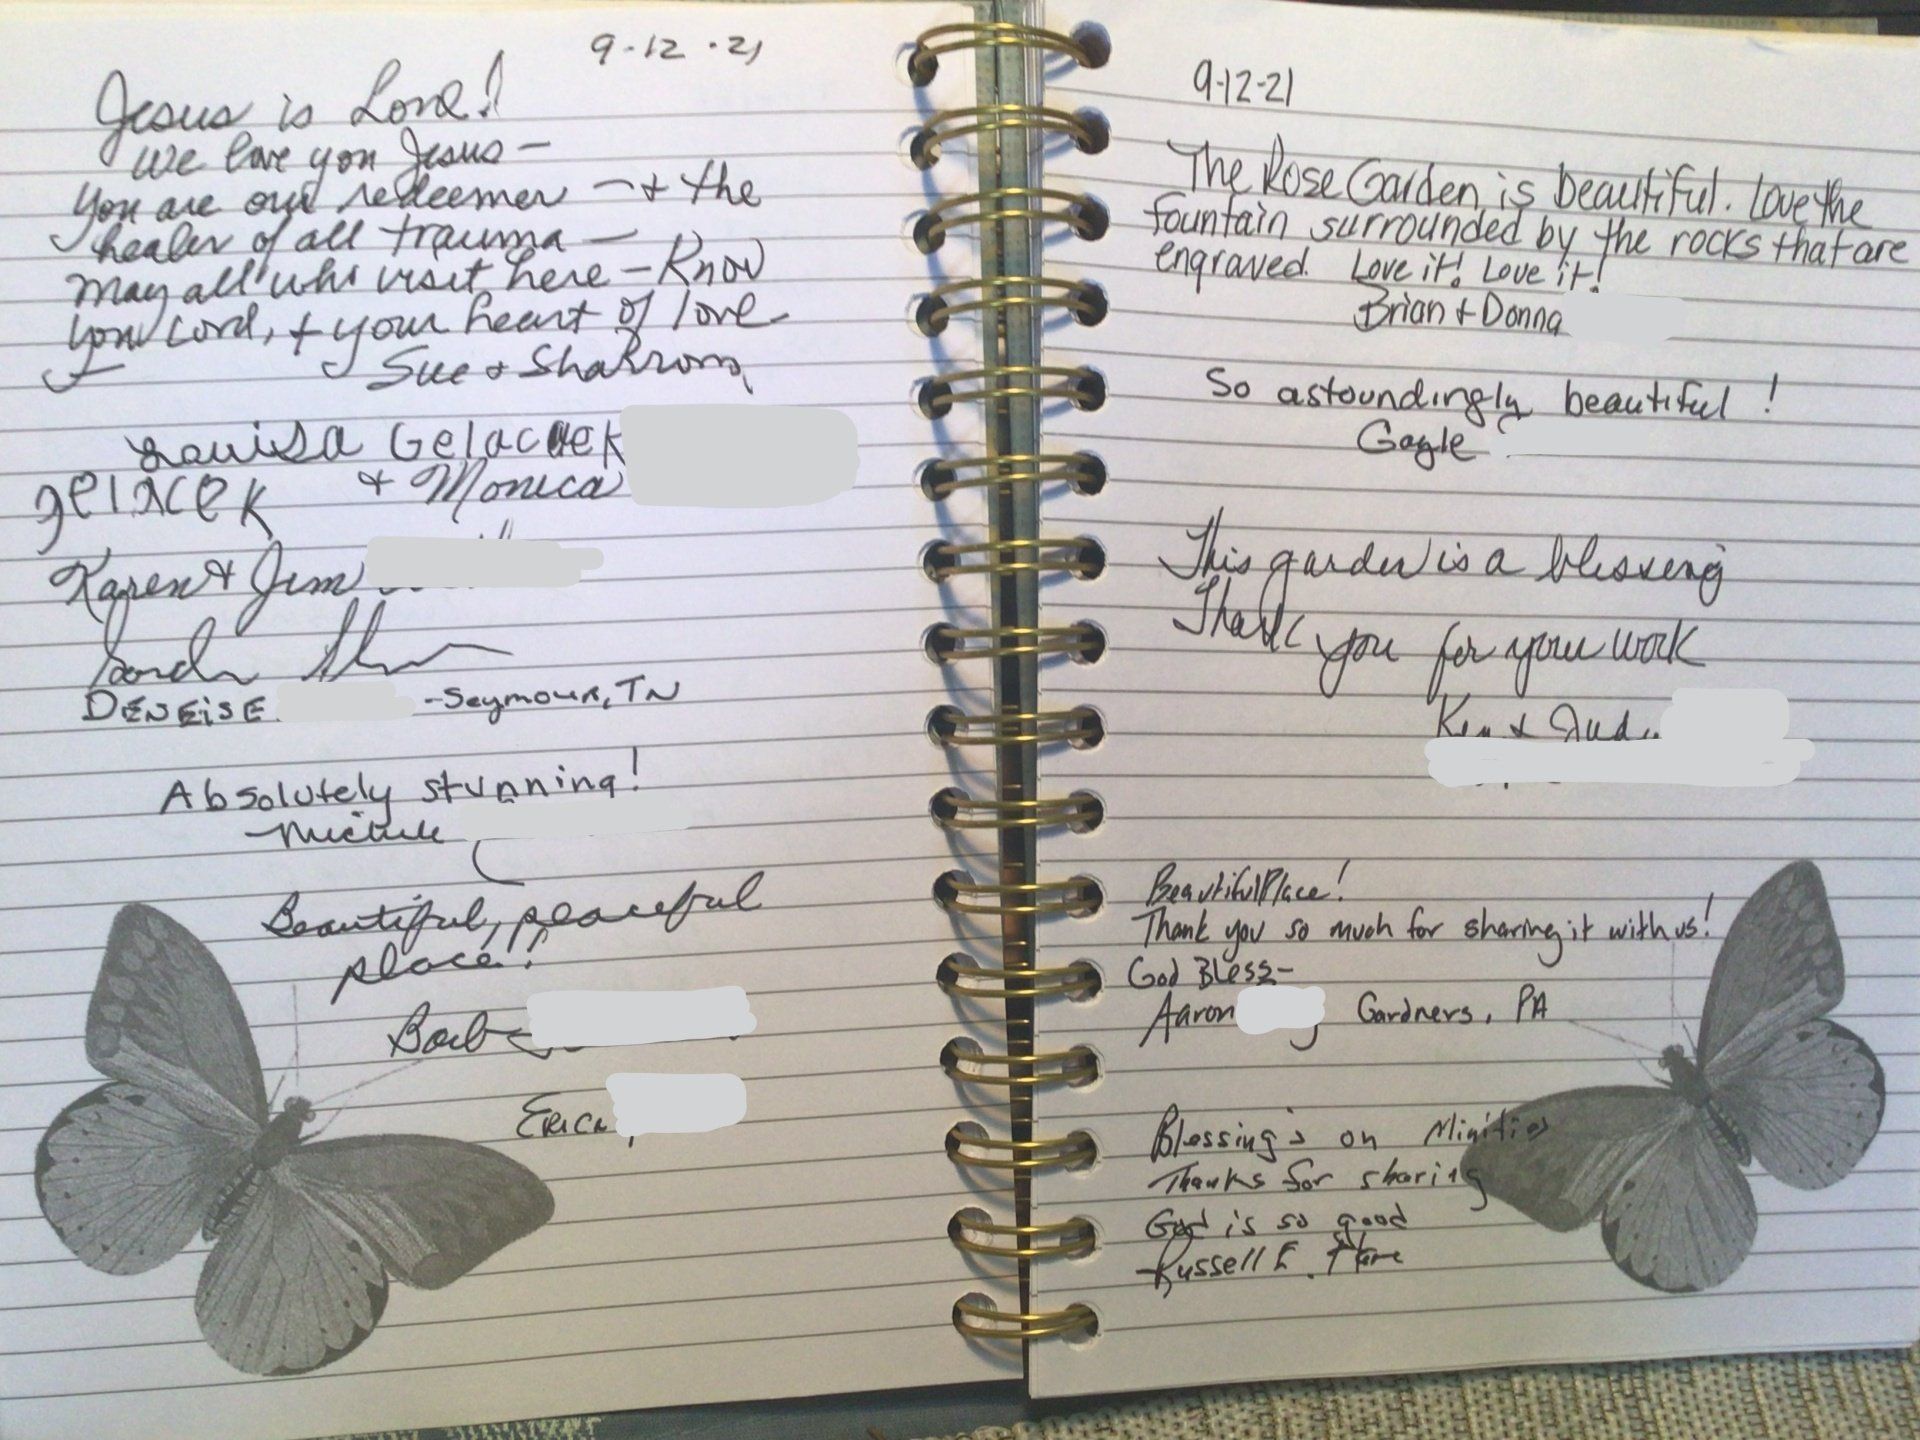 9-12-21
Jesus is Lord!
We love you Jesus -
You are our redeemer - + the
healer of all trauma -
May all who visit here - Know
You Lord, + your heart of love
Sue + Sharron
Louisa Gelacek
gelacek + Monica
Karen + Jim
DENEISE - Seymour, TN
Absolutely stunning!
- Michele
Beautiful, peaceful
place!!
Barb
Erica
9-12-21
The Rose Garden is beautiful. Love the
fountain surrounded by the rocks that are
engraved. Love it! Love it!
Brian + Donna
So astoundingly beautiful!
Gayle
This garden is a blessing
Thank you for your work
Ken + Judy
Beautiful Place!
Thank you so much for sharing it with us!
God Bless-
Aaron Gardners, PA
Blessing's on
Thanks for sharing
God is so good
Russell E.